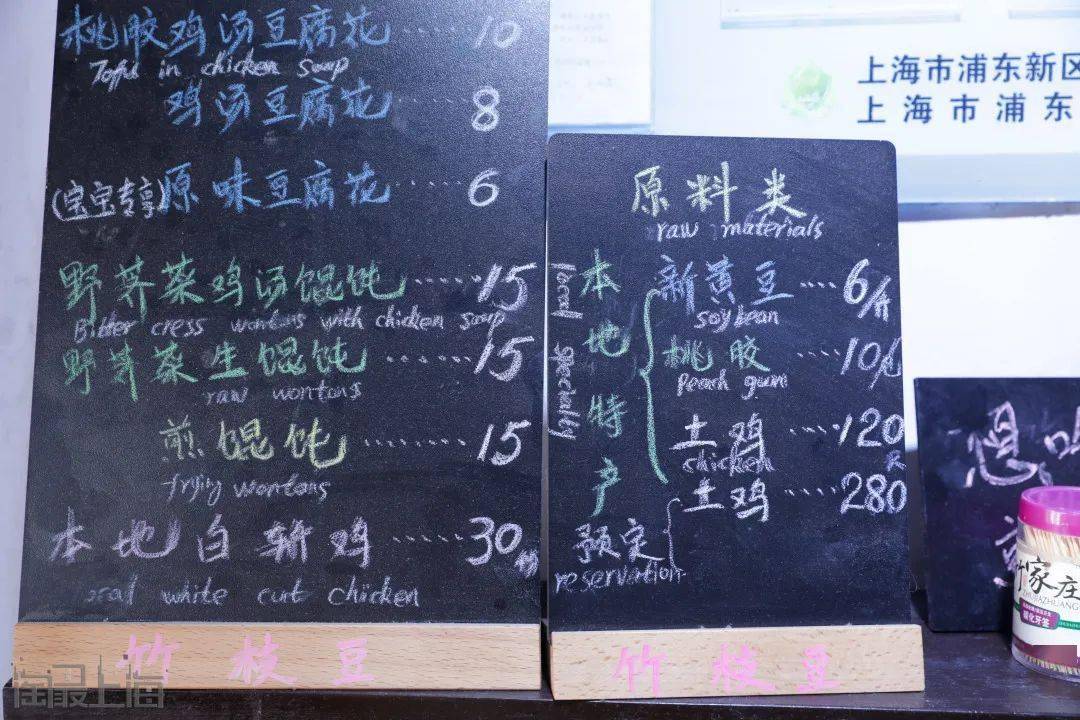 桃胶鸡汤豆腐花……10
Toffu in chicken soup
鸡汤豆腐花……8
(宝宝专享)原味豆腐花……6
野荠菜鸡汤馄饨……15
Bitter cress wontons with chicken soup
野荠菜生馄饨……15
raw wontons
煎馄饨……15
frying wontons
本地白斩鸡……30
local white cut chicken
竹枝豆
原料类
raw materials
本地特产
local specially
新黄豆……6/斤
soybean
桃胶……10/
peach gum
土鸡……120
chicken
土鸡……280
预定
reservation
竹枝豆
上海市浦东新区
上海市浦东
家庄
ZHUJIAZHUANG
碳化牙签
淘最上海